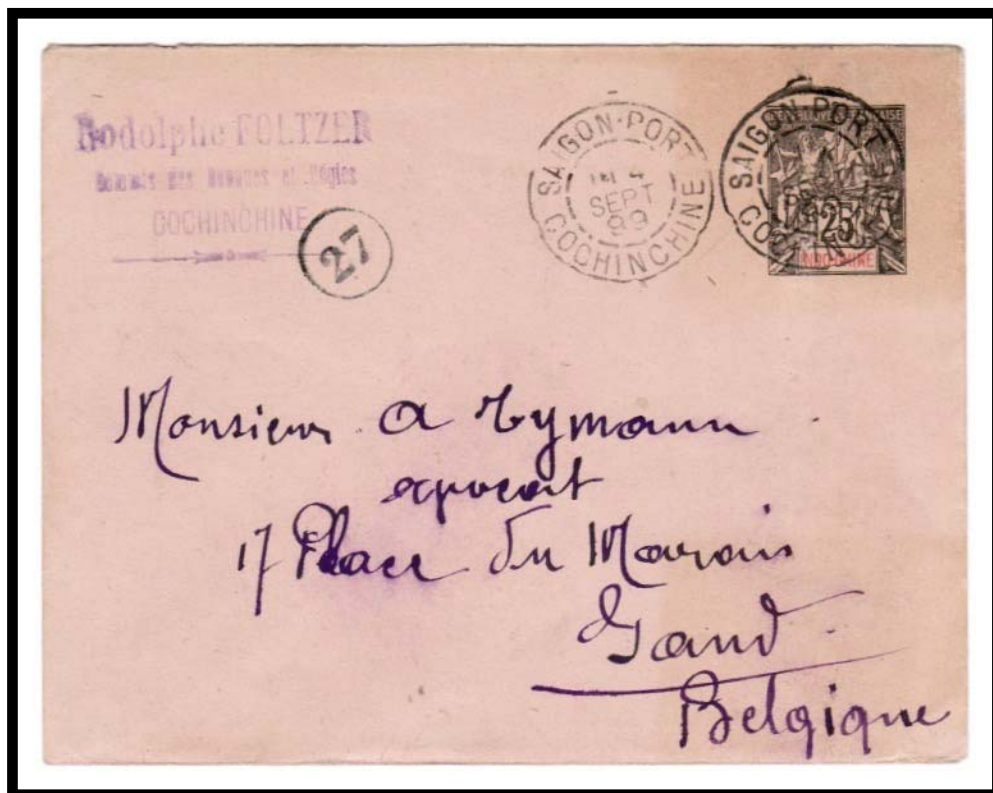 Rodolphe FOLTZER
Commis des Douanes et Régies
COCHINCHINE
27
SAIGON-PORT
4
SEPT
99
COCHINCHINE
SAIGON-PORT
SEPT
25
INDO-CHINE
Monsieur A
avocat
17 Place du Marais
Gand
Belgique